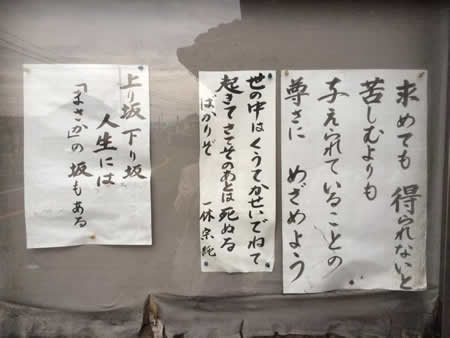 求めても 得られないと
苦しむよりも
与えられていることの
尊さに めざめよう
世の中はくうてかせいでねて
起きてさてそのあとは死ぬる
ばかりぞ
一休宗純
上り坂 下り坂
人生には
「まさか」の坂もある